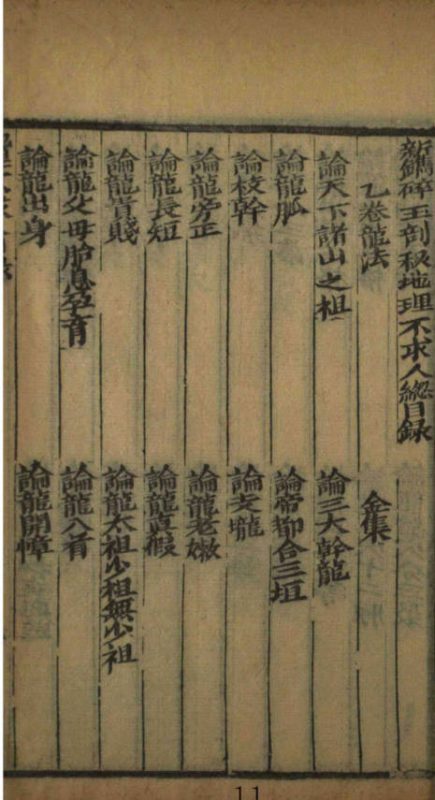 新鐫碎玉剖秘地理不求人總目錄
乙卷龍法 金集
論天下諸山之祖 論三大幹龍
論龍脉 論帝都合三垣
論枝幹 論支壠
論龍旁正 論龍老嫩
論龍長短 論龍真假
論龍貴賤 論龍太祖少祖無少祖
論龍父母胎息孕育 論龍入首
論龍出身 論龍開幛
11